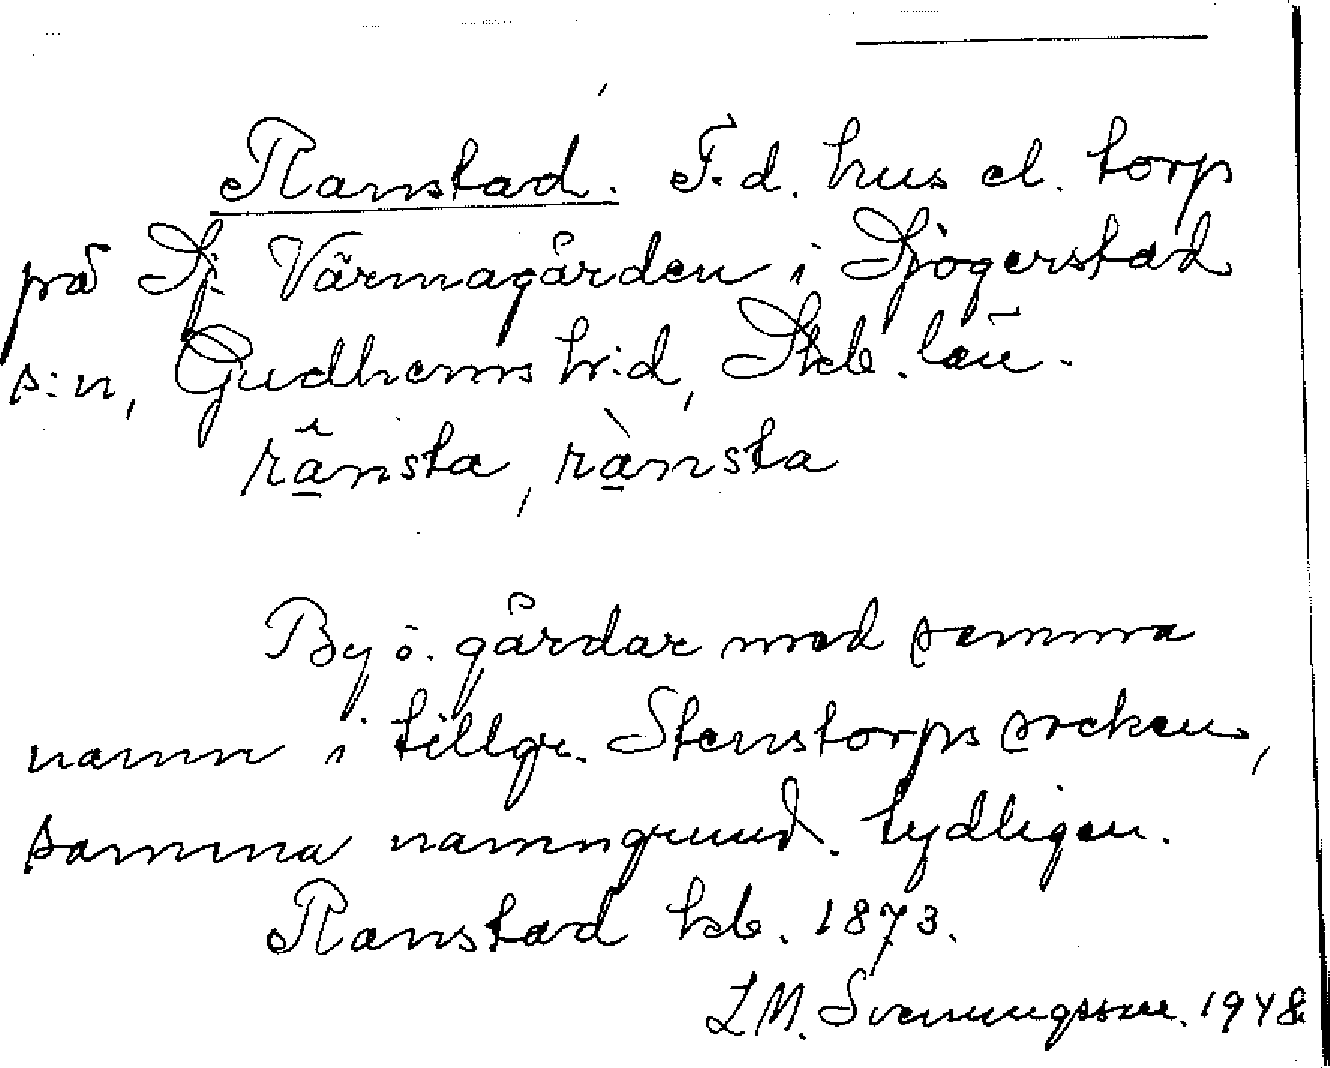 Ranstad. F.d. hus el. torp
på Sj. Värmagården i Sjögerstad
s:n, Gudhems h:d, Skb. län.
rânsta, rànsta
By o. gårdar med samma
namn i tillgr. Stenstorps socken,
samma namngrund. tydligen.
Ranstad kb. 1873.
L M. Svenungsson. 1948